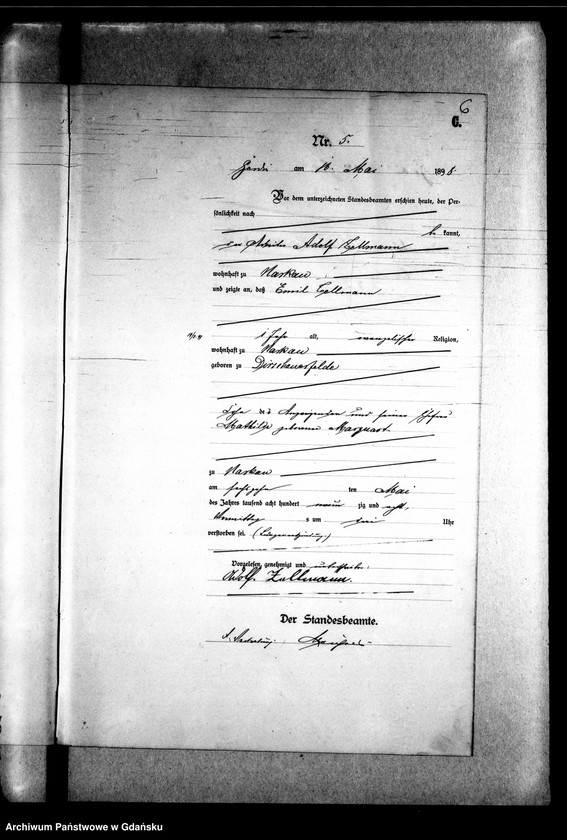 6
C.
Nr. 5.
am Mai 1898.
Vor dem unterzeichneten Standesbeamten erschien heute, der Per-
sönlichkeit nach
be kannt,
der Arbeiter Adolf Zellmann
wohnhaft zu Narkau
und zeigte an, daß Emil Zellmann
1 Jahr alt, evangelischer Religion,
wohnhaft zu Narkau
geboren zu Dirschauerfelde
Sohn des Anzeigenden und seiner Ehefrau
Mathilde geborene Marquart
zu Narkau
am sechszehn ten Mai
des Jahres tausend acht hundert neun zig und acht,
Vormittags um Uhr
verstorben sei.
Vorgelesen, genehmigt und unterschrieben.
Adolf Zellmann.
Der Standesbeamte.
Archiwum Państwowe w Gdańsku